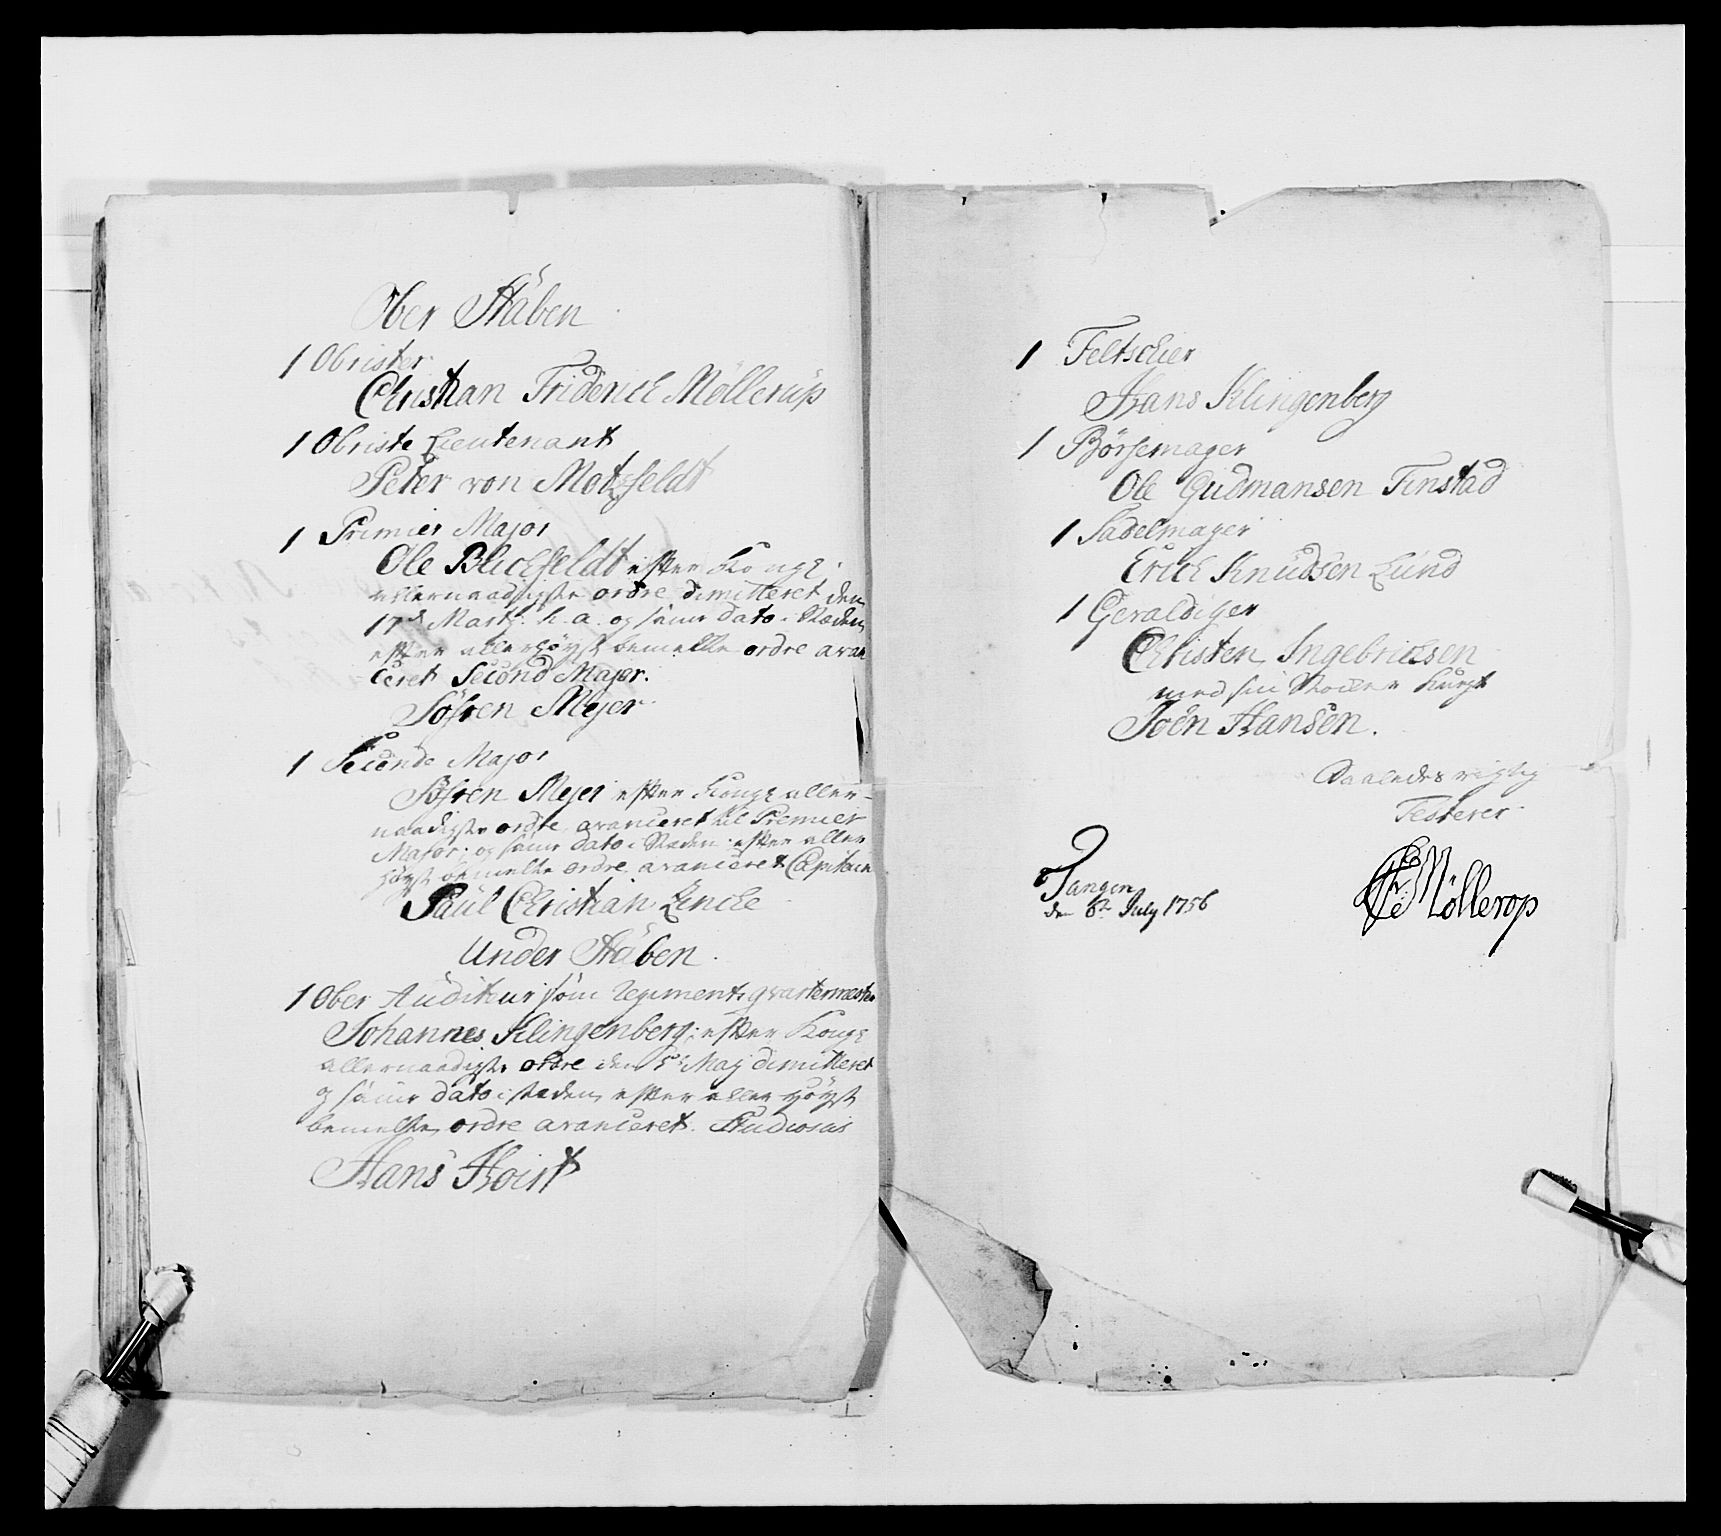 Ober Stäben
1 Obrister
Christian Friderich Möllerup
1 Obriste Lieutenant
Peter von Motzfeldt
1 Premier Major
Ole Blichfeldt efter Kongl:
allernaadigste ordre dimitteret den
17de Marty h. a. og samme dato i Stæden
efter allerhöyst bemelte ordre avan
ceret Second Major.
Söfren Mejer
1 Seconde Major
Söfren Mejer efter Kongl aller-
naadigste ordre avanceret til Premier
Major; og samme dato i Stæden efter aller
höyst bemelte ordre avanceret Capitain
Paul Christian Lencke
Under Stäben.
1 Ober Auditeur som Regiments qvartermester
Johannes Klingenberg; efter Kongl
allernaadigste ordre den 5te Maj dimitteret
og samme dato i stæden efter aller höyst
bemelte ordre avanceret. Studiosus
Hans Hoist
1 Feltschier
Hans Klingenberg
1 Börsemager
Ole Gudmansen Finstad
1 Sadelmager
Erich Knudsen Lund
1 Gevaldiger
Christen Ingebricksen
med sin Stocker Knegt
Joen Hansen.
Saaledes rigtig
Testerer
Tangen
den 6te July 1756
Möllerop